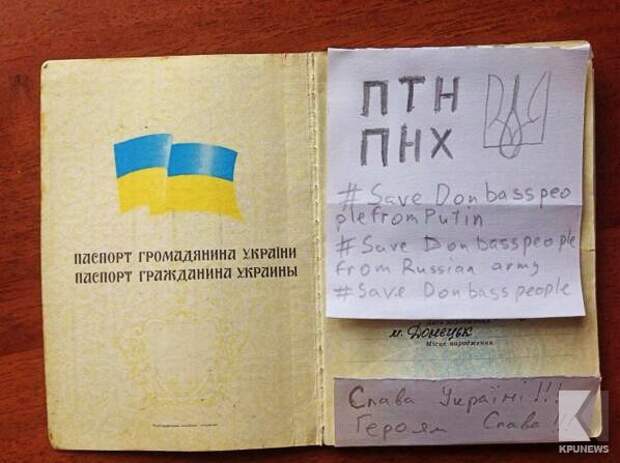 ПАСПОРТ ГРОМАДЯНИНА УКРАЇНИ
ПАСПОРТ ГРАЖДАНИНА УКРАИНЫ
ПТН
ПНХ
#Save Donbasspeo
plefromPutin
#Save Donbasspeople
from Russian army
#Save Donbasspeople
м. Донецьк
Місце народження
Слава Україні!!!
Героям Слава!!!
KPUNEWS